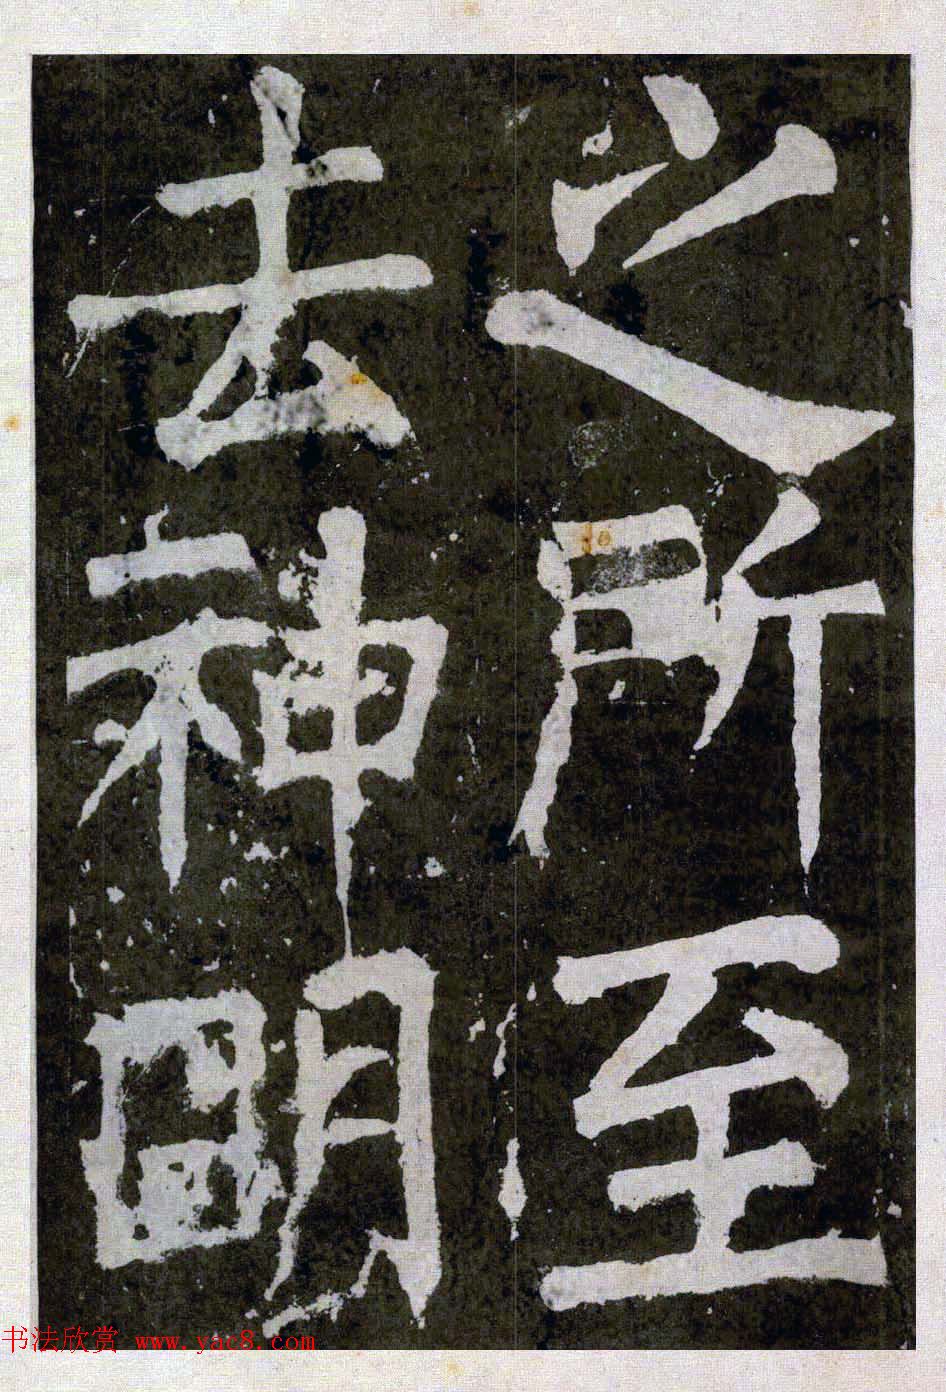 之所至
去神明
书法欣赏 www.yac8.com